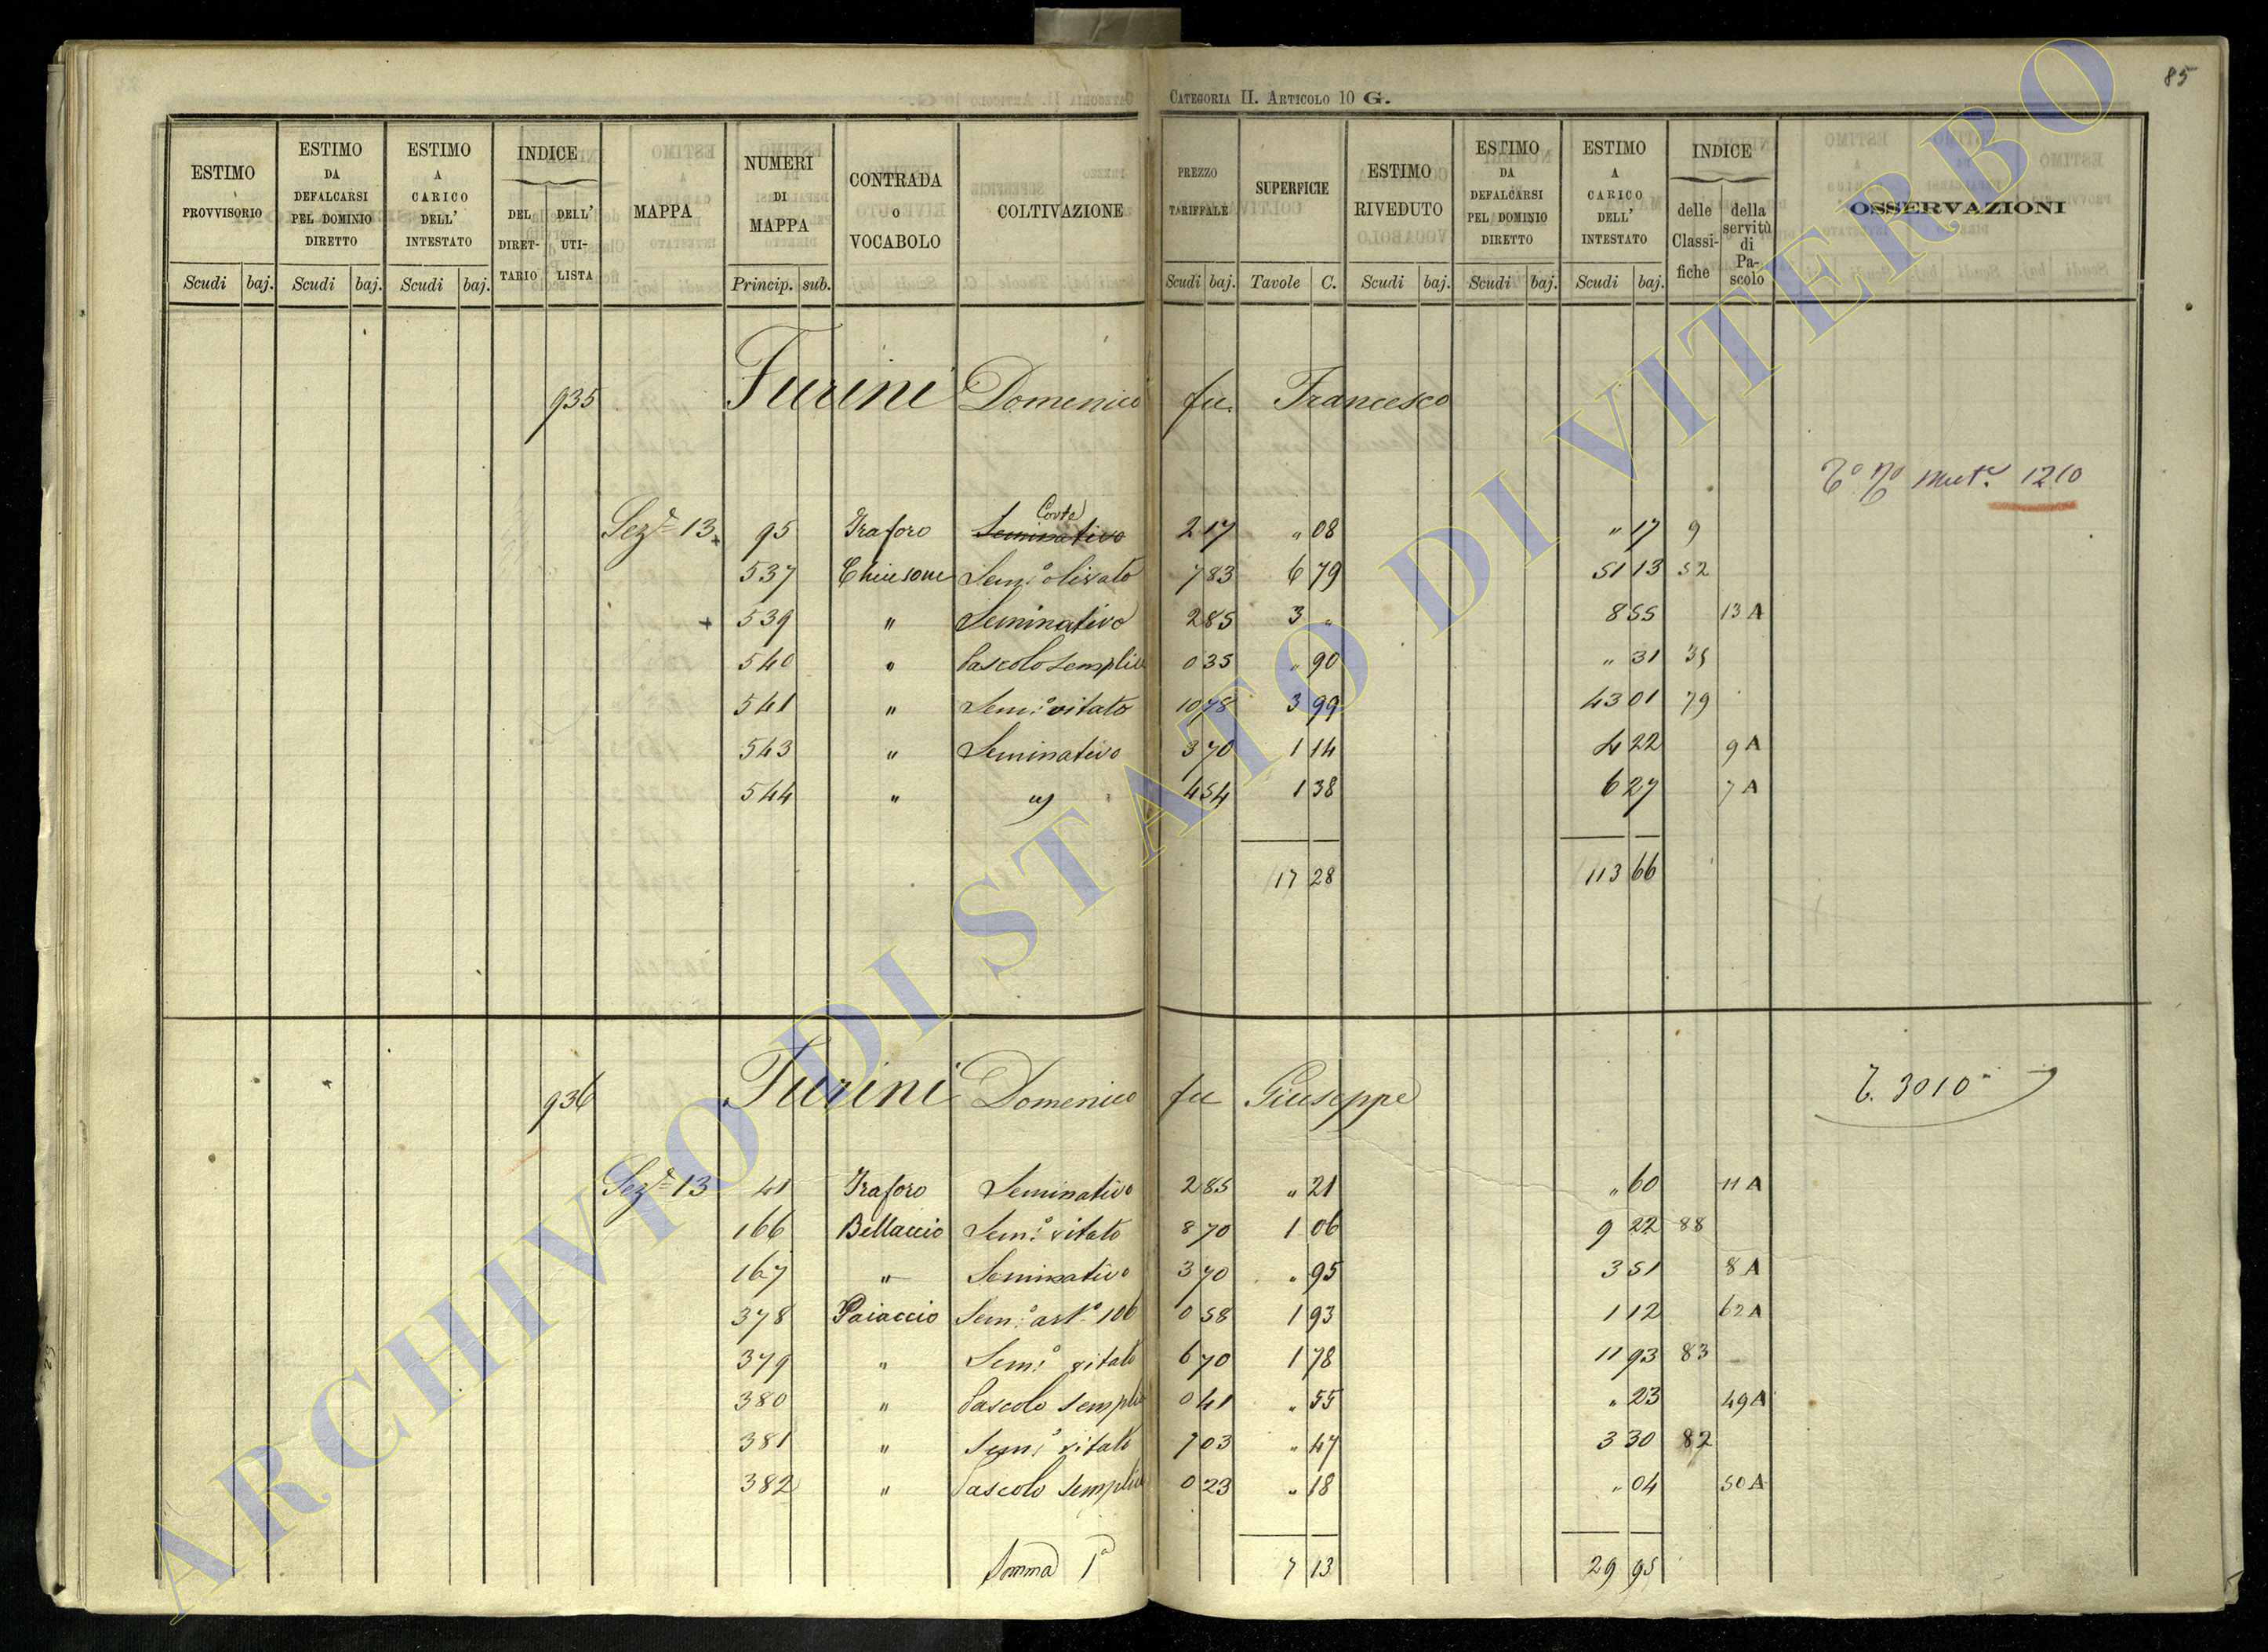 85
CATEGORIA II. ARTICOLO 10 G.
ESTIMO PROVVISORIO Scudi baj.
ESTIMO DA DEFALCARSI PEL DOMINIO DIRETTO Scudi baj.
ESTIMO A CARICO DELL' INTESTATO Scudi baj.
INDICE DEL DIRETTARIO DELL' UTILISTA
MAPPA
NUMERI DI MAPPA Princip. sub.
CONTRADA O VOCABOLO
COLTIVAZIONE
PREZZO TARIFFALE Scudi baj.
SUPERFICIE Tavole C.
ESTIMO RIVEDUTO Scudi baj.
ESTIMO DA DEFALCARSI PEL DOMINIO DIRETTO Scudi baj.
ESTIMO A CARICO DELL' INTESTATO Scudi baj.
INDICE delle Classifiche della servitù di Pascolo
OSSERVAZIONI
935 Furini Domenico fu Francesco
Mut. 1210
Sez.e 13 95 Traforo Seminativo Corte 2 17 " 08 " 17 9
537 Chiusone Sem.o olivato 7 83 6 79 51 13 52
+ 539 " Seminativo 2 85 3 " 8 55 13 A
540 " Pascolo semplice 0 35 " 90 " 31 35
541 " Sem.o vitato 10 78 3 99 43 01 79
543 " Seminativo 3 70 1 14 4 22 9 A
544 " " 4 54 1 38 6 27 7 A
17 28 113 66
936 Furini Domenico fu Giuseppe
T. 3010
Sez.e 13 41 Traforo Seminativo 2 85 " 21 " 60 11 A
166 Bellaccio Sem.o vitato 8 70 1 06 9 22 88
167 " Seminativo 3 70 " 95 3 51 8 A
378 Paiaccio Sem.o art.o 106 0 58 1 93 1 12 62 A
379 " Sem.o vitato 6 70 1 78 11 93 83
380 " Pascolo semplice 0 41 " 55 " 23 49 A
381 " Sem.o vitato 7 03 " 47 3 30 82
382 " Pascolo semplice 0 23 " 18 " 04 50 A
Somma 1a 7 13 29 95
ARCHIVIO DI STATO DI VITERBO